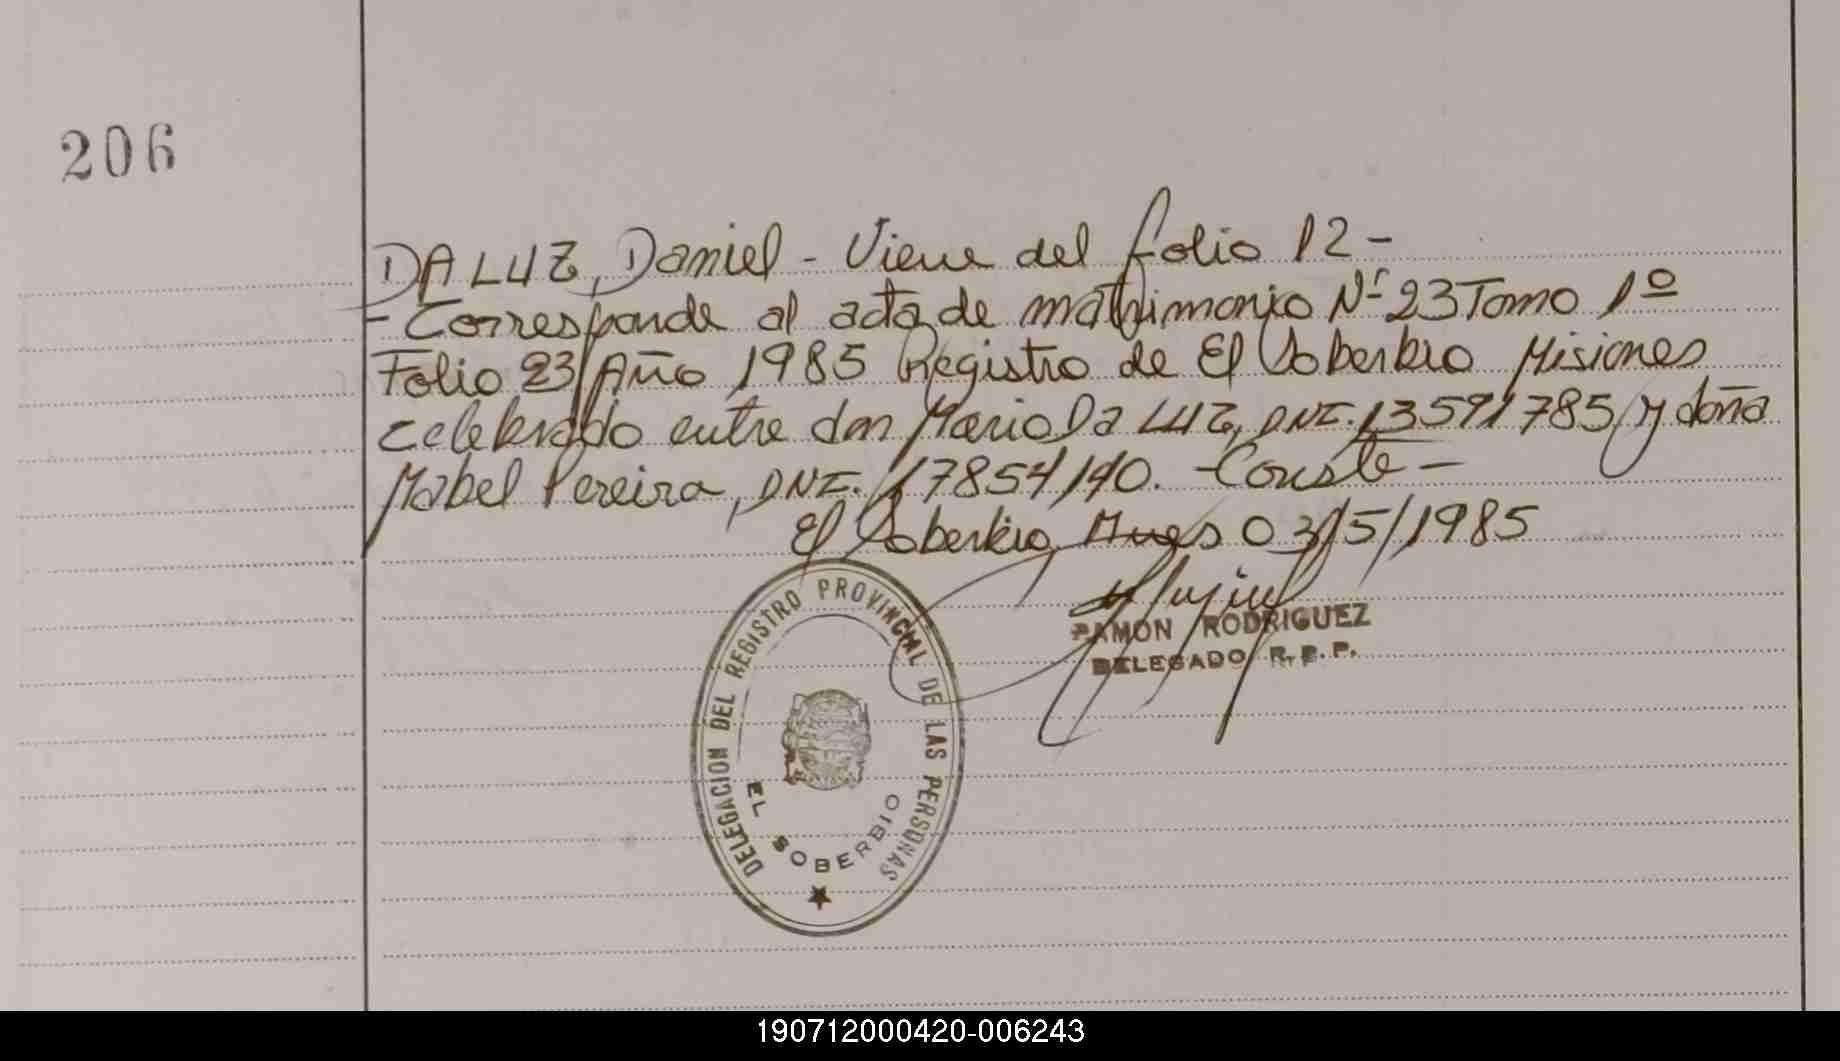 206
DA LUZ, Daniel - Viene del folio 12 -
- Corresponde al acta de matrimonio Nº 23 Tomo 1º
Folio 23 Año 1985 Registro de El Soberbio Misiones
celebrado entre don Mario Da LUZ, DNI. 13591785 y doña
Mabel Pereira, DNI. 17854140. - Conste -
El Soberbio, Mnes 03/5/1985
RAMON RODRIGUEZ
DELEGADO R.P.P.
DELEGACION DEL REGISTRO PROVINCIAL DE LAS PERSONAS
EL SOBERBIO
190712000420-006243